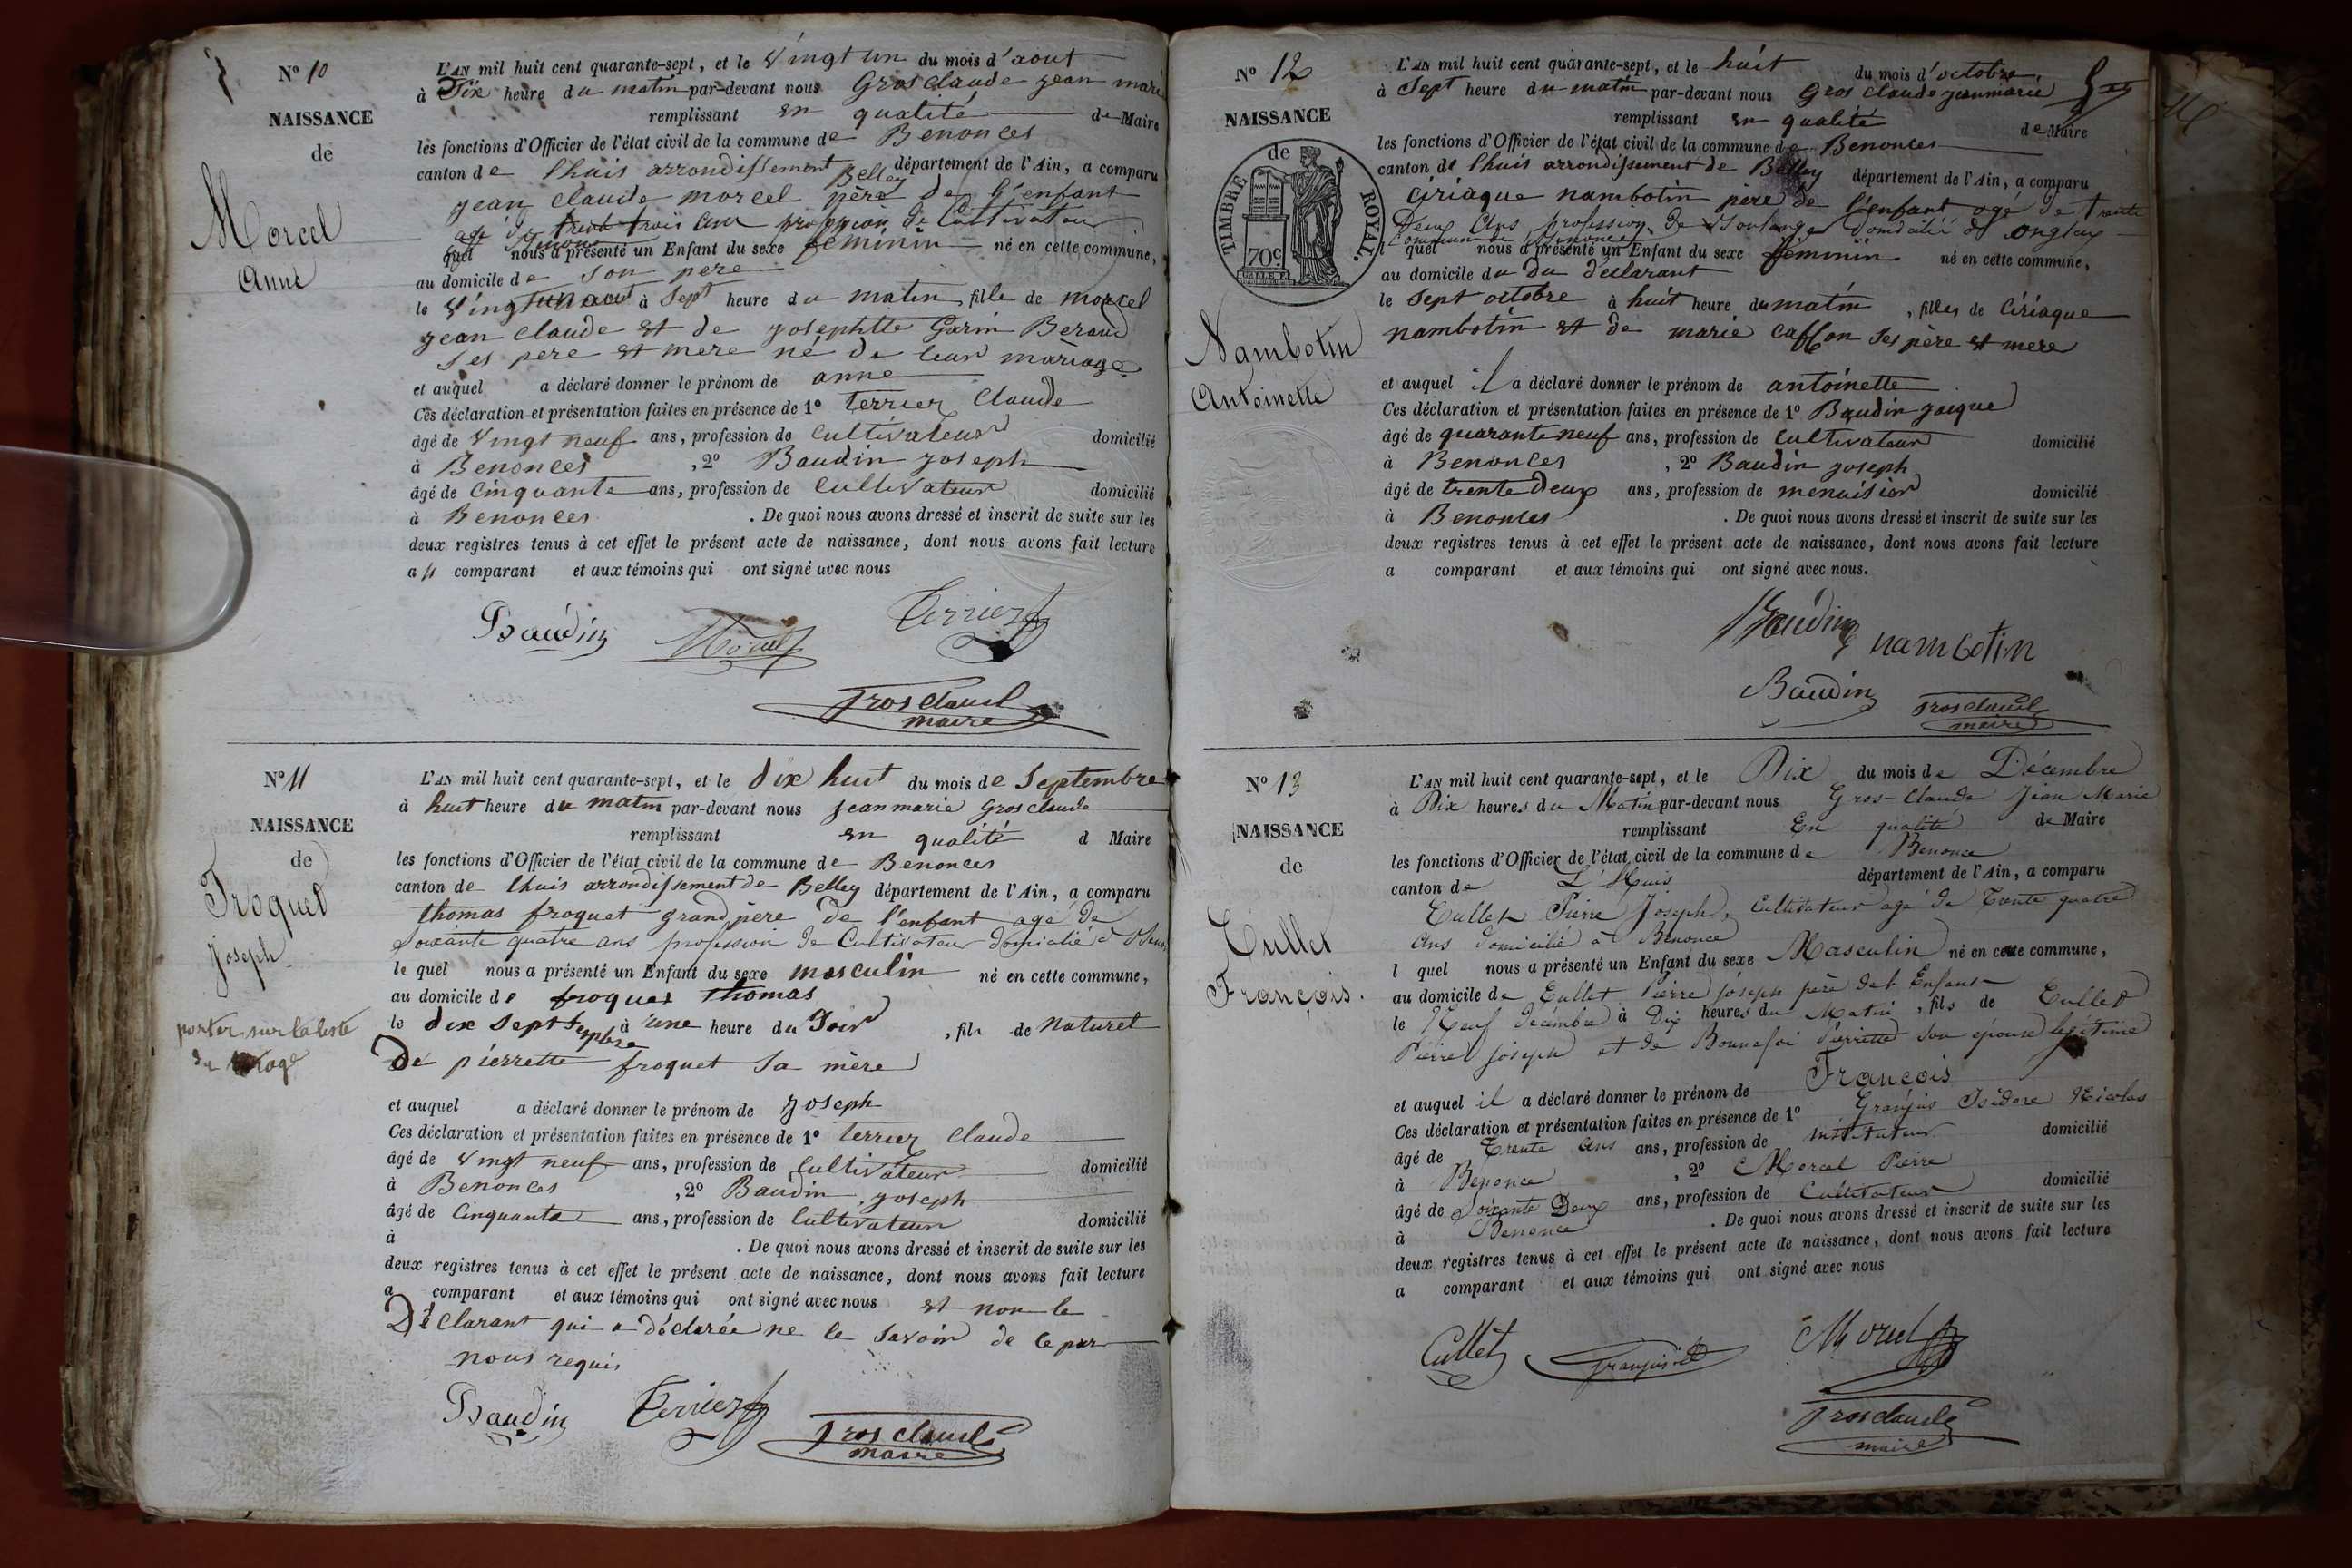 N° 10
NAISSANCE
de
Morcel
Anne
L'AN mil huit cent quarante-sept, et le vingt un du mois d'aout
à Six heure du matin par-devant nous Grosclaude jean marie
remplissant en qualité de Maire
les fonctions d'Officier de l'état civil de la commune de Benonces
canton de lhuis arrondissement Belley département de l'Ain, a comparu
jean claude morcel père de l'enfant
agé de trente trois ans profession de Cultivateur
quel nous a présenté un Enfant du sexe féminin né en cette commune,
au domicile de son pere
le vingt un aout à sept heure du matin, fille de morcel
jean claude et de josephtte Garin Beraud
ses pere et mere né de leur mariage
et auquel a déclaré donner le prénom de anne
Ces déclaration et présentation faites en présence de 1° terrier Claude
âgé de vingt neuf ans, profession de Cultivateur domicilié
à Benonces , 2° Baudin joseph
âgé de Cinquante ans, profession de Cultivateur domicilié
à Benonces . De quoi nous avons dressé et inscrit de suite sur les
deux registres tenus à cet effet le présent acte de naissance, dont nous avons fait lecture
a comparant et aux témoins qui ont signé avec nous
Baudin Morcel Terrier
Grosclaude
maire
N° 11
NAISSANCE
de
Froquet
joseph
porter sur la liste
du tirage
L'AN mil huit cent quarante-sept, et le dix huit du mois de Septembre
à huit heure du matin par-devant nous jeanmarie Grosclaude
remplissant en qualité d Maire
les fonctions d'Officier de l'état civil de la commune de Benonces
canton de lhuis arrondissement de Belley département de l'Ain, a comparu
thomas froquet grand père de l'enfant agé de
Soixante quatre ans profession de Cultivateur domicilié à
le quel nous a présenté un Enfant du sexe masculin né en cette commune,
au domicile de froquet thomas
le dix sept septembre à une heure du Soir , fils de naturel
De pierrette froquet sa mère
et auquel a déclaré donner le prénom de joseph
Ces déclaration et présentation faites en présence de 1° terrier Claude
âgé de vingt neuf ans, profession de Cultivateur domicilié
à Benonces , 2° Baudin joseph
âgé de Cinquante ans, profession de Cultivateur domicilié
à . De quoi nous avons dressé et inscrit de suite sur les
deux registres tenus à cet effet le présent acte de naissance, dont nous avons fait lecture
a comparant et aux témoins qui ont signé avec nous et non le
Déclarant qui a déclarée ne le savoir de ce par
nous requis
Baudin Terrier Grosclaude
maire
N° 12
NAISSANCE
de
TIMBRE ROYAL.
70c
Nambotin
Antoinette
L'AN mil huit cent quarante-sept, et le huit du mois d'octobre
à Sept heure du matin par-devant nous Grosclaude jeanmarie
remplissant en qualité de Maire
les fonctions d'Officier de l'état civil de la commune de Benonces
canton de lhuis arrondissement de Belley département de l'Ain, a comparu
Ciriaque nambotin père de l'enfant agé de trante
Deux Ans profession de Boulanger domicilié à onglas
Commune de Benonces
l quel nous a présenté un Enfant du sexe féminin né en cette commune,
au domicile du du déclarant
le sept octobre à huit heure du matin , filles de Ciriaque
nambotin et de marie Caffon ses père et mere
et auquel il a déclaré donner le prénom de antoinette
Ces déclaration et présentation faites en présence de 1° Baudin jaique
âgé de quarante neuf ans, profession de Cultivateur domicilié
à Benonces , 2° Baudin joseph
âgé de trente deux ans, profession de menuisier domicilié
à Benonces . De quoi nous avons dressé et inscrit de suite sur les
deux registres tenus à cet effet le présent acte de naissance, dont nous avons fait lecture
a comparant et aux témoins qui ont signé avec nous.
Baudin nambotin
Baudin Grosclaude
maire
N° 13
NAISSANCE
de
Cullet
François.
L'AN mil huit cent quarante-sept, et le Dix du mois de Décembre
à Dix heures du Matin par-devant nous Gros-Claude Jean Marie
remplissant En qualité de Maire
les fonctions d'Officier de l'état civil de la commune de Benonce
canton de L'Huis département de l'Ain, a comparu
Cullet Pierre Joseph, Cultivateur agé de Trente quatre
ans domicilié à Benonce
l quel nous a présenté un Enfant du sexe Masculin né en cette commune,
au domicile de Cullet Pierre joseph père de l Enfant
le Neuf décembre à Dix heures du Matin , fils de Cullet
Pierre joseph et de Bonnefoi Pierrette son épouse légitime
et auquel il a déclaré donner le prénom de François
Ces déclaration et présentation faites en présence de 1° Granjus Isidore Nicolas
âgé de Trente ans ans, profession de instituteur domicilié
à Benonce , 2° Morcel Pierre
âgé de Soixante Deux ans, profession de Cultivateur domicilié
à Benonce . De quoi nous avons dressé et inscrit de suite sur les
deux registres tenus à cet effet le présent acte de naissance, dont nous avons fait lecture
a comparant et aux témoins qui ont signé avec nous
Cullet Morcel
Grosclaude
maire